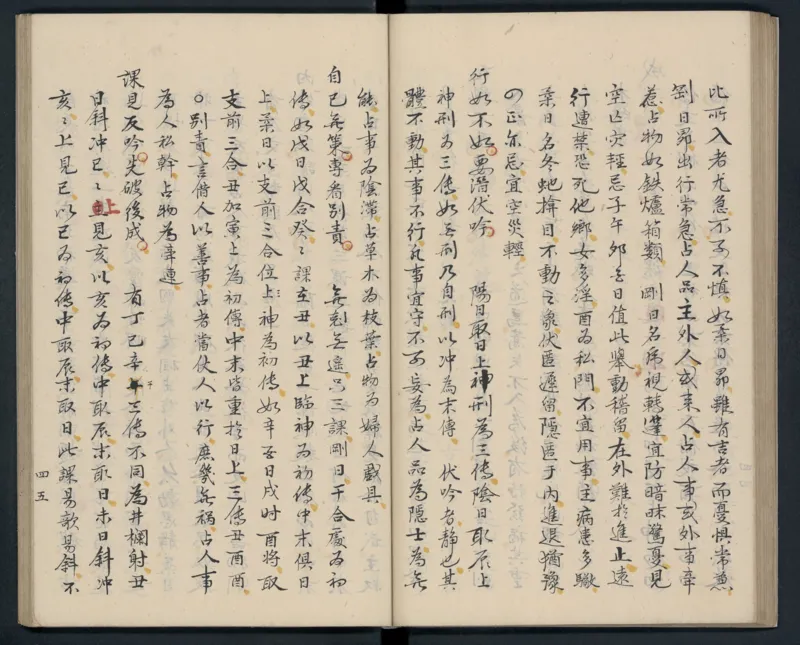 此所入者尤急不可不慎如柔日昴雖有吉者而憂惧常兼
剛日昴出行常急占人品主外人或来人占人事或外事牽
惹占物如鉄爐箱類 剛日名虎視轉蓬宜防暗昧驚憂見
空亡灾輕忌子午卯酉日值此舉動稽留在外難於進止遠
行遭禁恐死他鄉女多淫酉為私門不宜用事主病患多驚
柔日名冬虵掩目不動之象伏匿遲留隱匿于内進退猶豫
正宜空災輕
行如不如要潛伏吟 陽日取日上神刑為三傳陰日取辰上
神刑為三傳如无刑乃自刑以冲為末傳 伏吟者靜也其
體不動其事不行凡事宜守不可妄為占人品為隱士為
占事為陰滞占草木為枝葉占物為婦人戯具
自已无策專看別責 无剋无遥只三課剛日干合處為初
傳如戊日戊合癸〻課在丑以丑上臨神為初傳中末俱日
上柔日以支前三合位上神為初傳如辛酉日戌时酉將取
支前三合丑加寅上為初傳中末皆重於日上三傳丑酉酉
○別責言借人以善事占者當仗人以行庶幾无禍占人事
為人私幹占物為牽連
課見反吟先破後成 有丁巳辛三傳不同為井欄射丑
日斜冲巳〻上見亥以亥為初傳中取辰末取日未日斜冲
亥〻上見巳以巳為初傳中取辰末取日此課易欹易斜不
四五